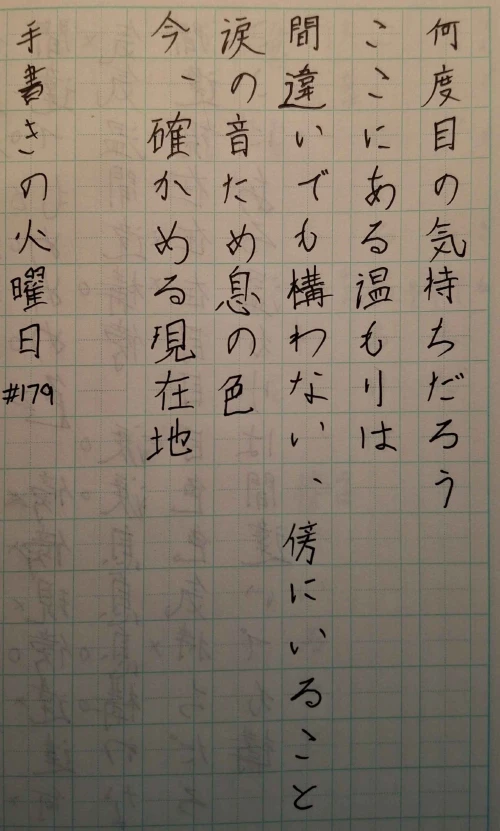 何度目の気持ちだろう
ここにある温もりは
間違いでも構わない、傍にいること
涙の音ため息の色
今、確かめる現在地
手書きの火曜日
#179